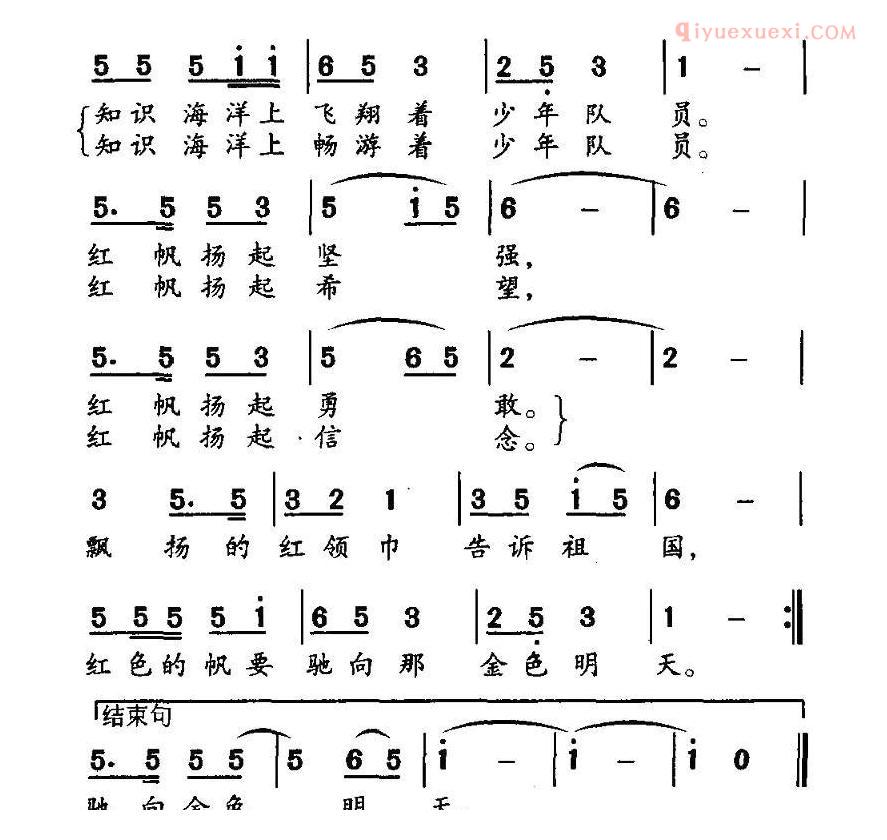 qiyuexuexi.com
5 5 5 i i | 6 5 3 | 2 5 3 | 1 - |
知识 海洋上 飞翔着 少年队 员。
知识 海洋上 畅游着 少年队 员。
5. 5 5 3 | 5 i 5 | 6 - | 6 - |
红 帆扬起坚 强，
红 帆扬起希 望，
5. 5 5 3 | 5 6 5 | 2 - | 2 - |
红 帆扬起勇 敢。
红 帆扬起信 念。
3 5. 5 | 3 2 1 | 3 5 i 5 | 6 - |
飘 扬的红领巾 告诉祖 国，
5 5 5 5 i | 6 5 3 | 2 5 3 | 1 - :||
红色的帆要 驰向那 金色明 天。
结束句
5. 5 5 5 | 5 6 5 | i - | i - | i 0 ||
驰 向金色 明 天